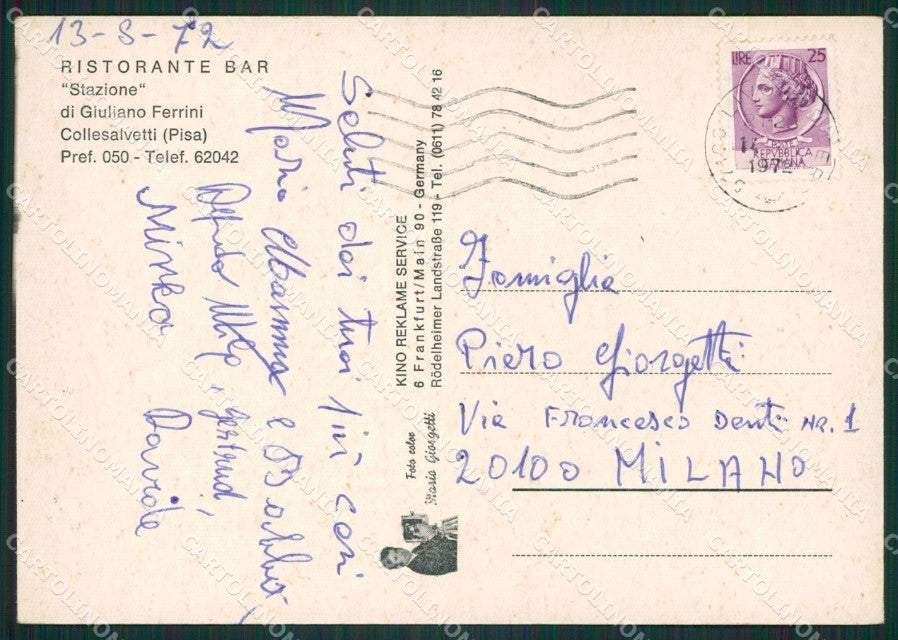 13-8-72
RISTORANTE BAR
"Stazione"
di Giuliano Ferrini
Collesalvetti (Pisa)
Pref. 050 - Telef. 62042
Saluti dai tuoi più cari
Mario e Babbo
Alfredo
Mirka
Davide
KINO REKLAME SERVICE
6 Frankfurt/Main 90 - Germany
Rödelheimer Landstraße 119 - Tel. (0611) 78 42 16
Foto color
Mario Giorgetti
LIRE 25
REPVBBLICA
14
197
Famiglia
Piero Giorgetti
Via Francesco Denti NR. 1
20100 MILANO
CARTOLINOMANIA